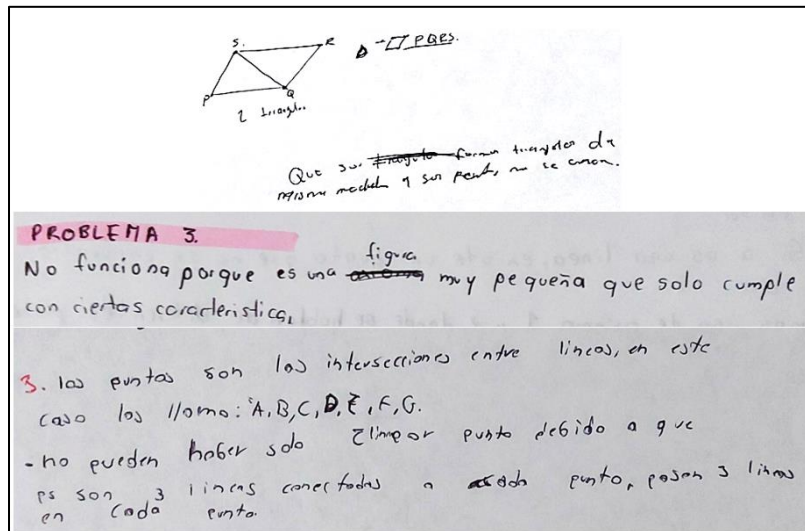 S. R
P Q
▱ PQRS.
2
Que son forman triangulos de
misma medida y sus no se
PROBLEMA 3.
No funciona porque es una figura muy pequeña que solo cumple
con ciertas caracteristica,
3. las puntas son las intersecciones entre lineas, en este
caso las llamo: A, B, C, D, E, F, G.
- no pueden haber solo punto debido a que
son 3 lineas conectadas a cada punto, pasan 3 lineas
en cada punto.